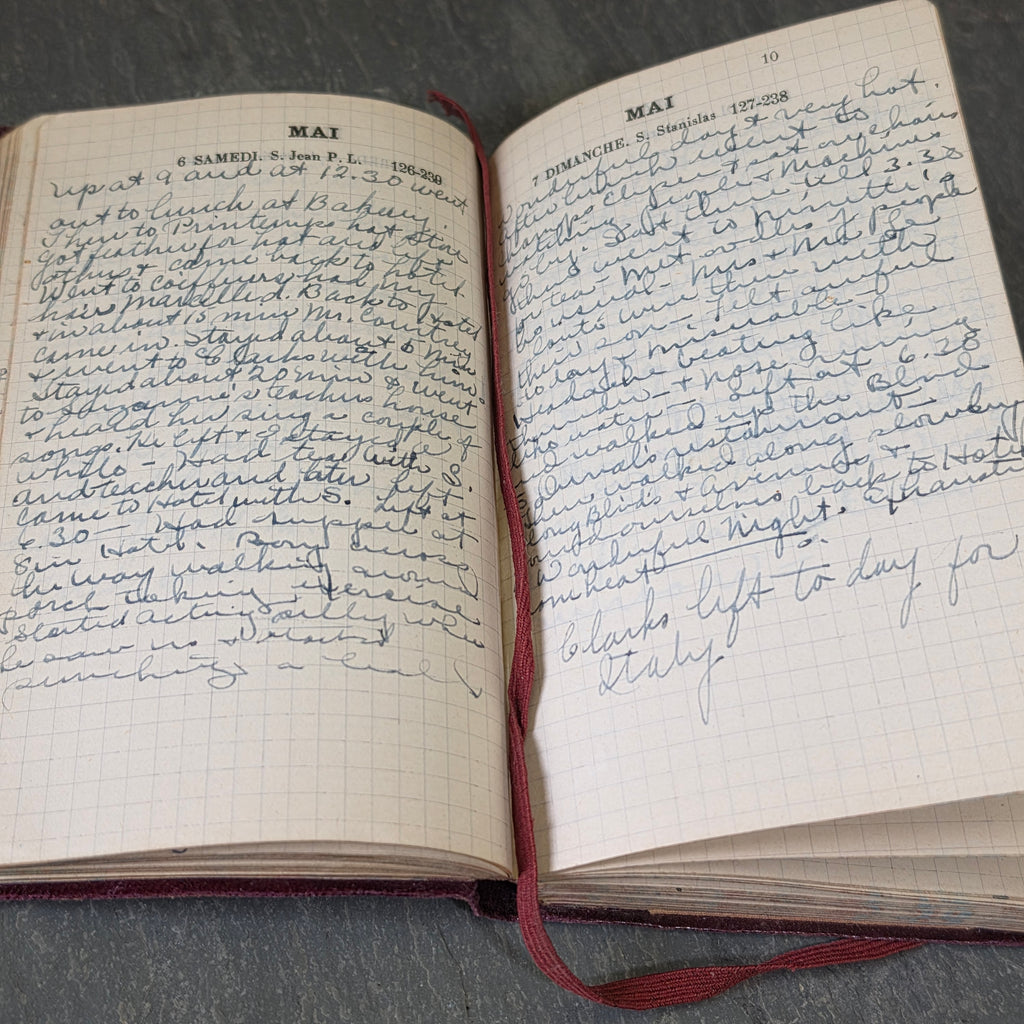 MAI
6 SAMEDI. S. Jean P. L. 126-239
up at 9 and at 12.30 went
out to lunch at Bakery.
Then to Printemps hat store
got feather for hat and left
got bus & came back to hotel.
Went to coiffeurs had my
hair marcelled. Back to Hotel
& in about 15 min Mr. Courtney
came in. Stayed about 5 min
& went to Clarks with him.
Stayed about 20 min & went
to Suzanne's teachers house
& heard her sing a couple of
songs. He left & I stayed a
while - Had tea with S.
and teacher and later left
came to Hotel with S. Left at
6.30 - Had supper at
Hotel. Boy across
the way walking
porch taking exercise
started acting silly when
he saw us & started
punching a
10
MAI
7 DIMANCHE. S. Stanislas 127-238
Wonderful day & very hot.
After lunch went to
Champs Elysees & sat on chairs
watching people & machines
go by. Sat there till 3.30
then went to Ninette's
for tea - Met oodles of people
as usual - Mrs & Mr
were there with
their son - Felt awful
to-day & miserable
headache beating like
thunder - & nose running
like water - Left at 6.20
and walked up the Blvd
Duval's restaurant -
then walked along slowly
along Blvds & avenues &
found ourselves back to Hotel
Wonderful Night.
from heat
Clarks left to day for
Italy